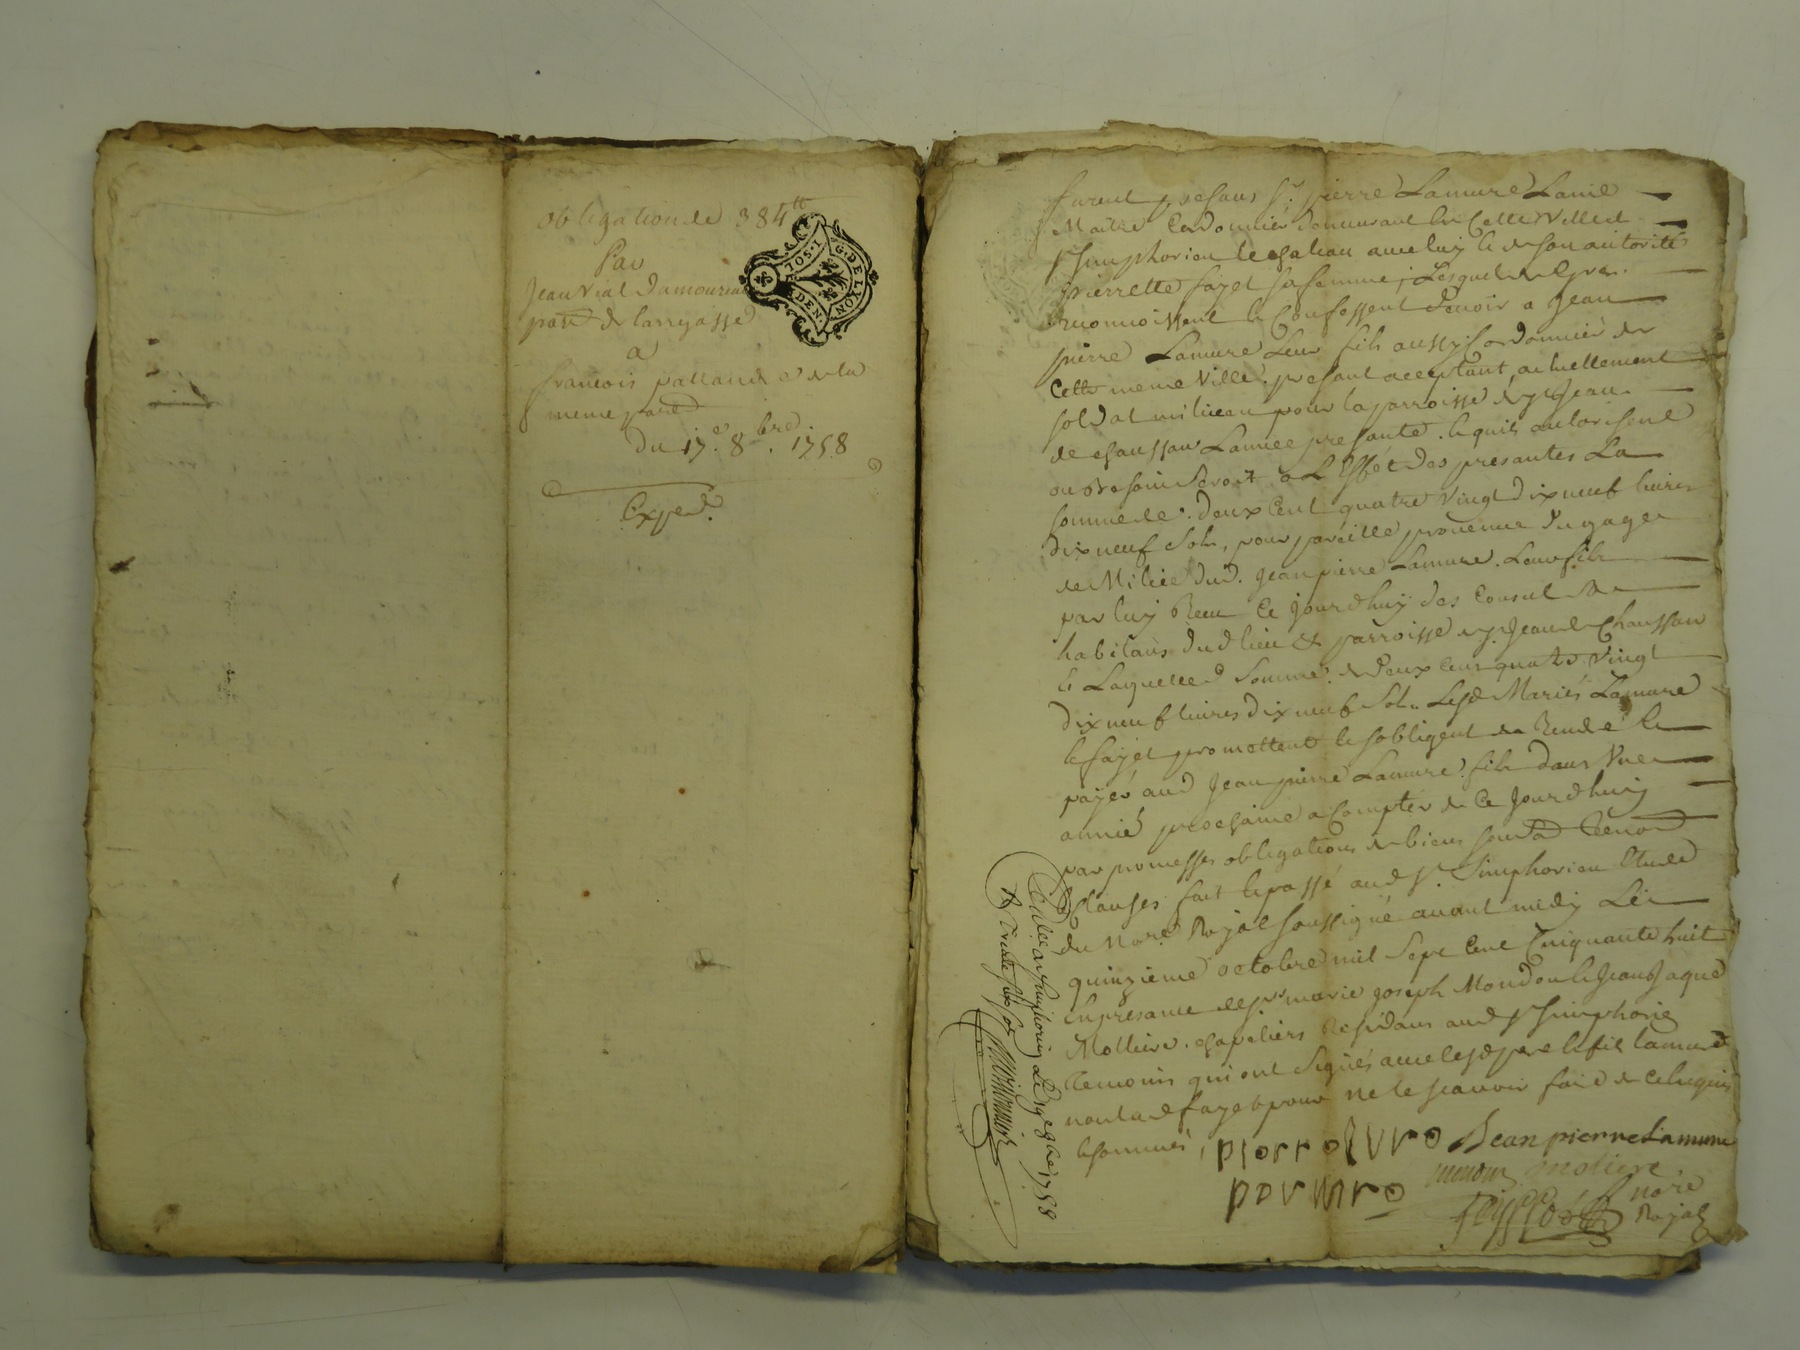 obligation de 384tt
Par
Jean Vial Damourieu
parr. de larryasse
a
francois pallandre de la
meme parr.
Du 17e. 8bre. 1758
Exped.
G. DE LYON
DEN.
furent presans Sr. pierre Lamure Lainé
Maitre Cordonnier demeurant en Cette Ville de
St Simphorien le chateau avec luy & de son autorité
pierrette fayet sa femme, Lesquels de gré
reconnoissent & Confessent devoir a Jean
pierre Lamure Leur fils aussy Cordonnier de
Cette meme Ville, presant acceptant, actuellement
soldat milicien pour la parroisse de St Jean
de chaussan Lannée presante, & quils autorisent
ou besoin seroit a L'Effet des presantes La
somme de deux Cent quatre Vingt dix neuf livres
dix neuf sols, pour pareille provenue du gage
de Milice dud. Jean pierre Lamure Leur fils
par luy Receu Ce jourdhuy des Consul &
habitans dud lieu & parroisse de St Jean de Chaussan
& Laquelle somme de deux Cent quatre Vingt
dix neuf livres dix neuf sols Lesd Mariés Lamure
& fayet promettent & sobligent de Rendre &
payer aud Jean pierre Lamure fils dans Une
année prochaine a Compter de Ce Jourdhuy
par promesses obligations de biens
Clauses fait & passé aud St. Simphorien Etude
du Nore. Royal soussigné avant midy Le
quinzieme octobre mil Sept Cent Cinquante huit
En presance de Sr marie Joseph Mondon & Jean Jaque
Moliere, chapeliers Residans aud St Simphorien
temoins qui ont signés avec lesd pere & fils Lamure &
non lad fayet pour ne le scavoir faire de Ce Enquis
& sommés,
Jean pierre Lamure
moliere
nore
Royal